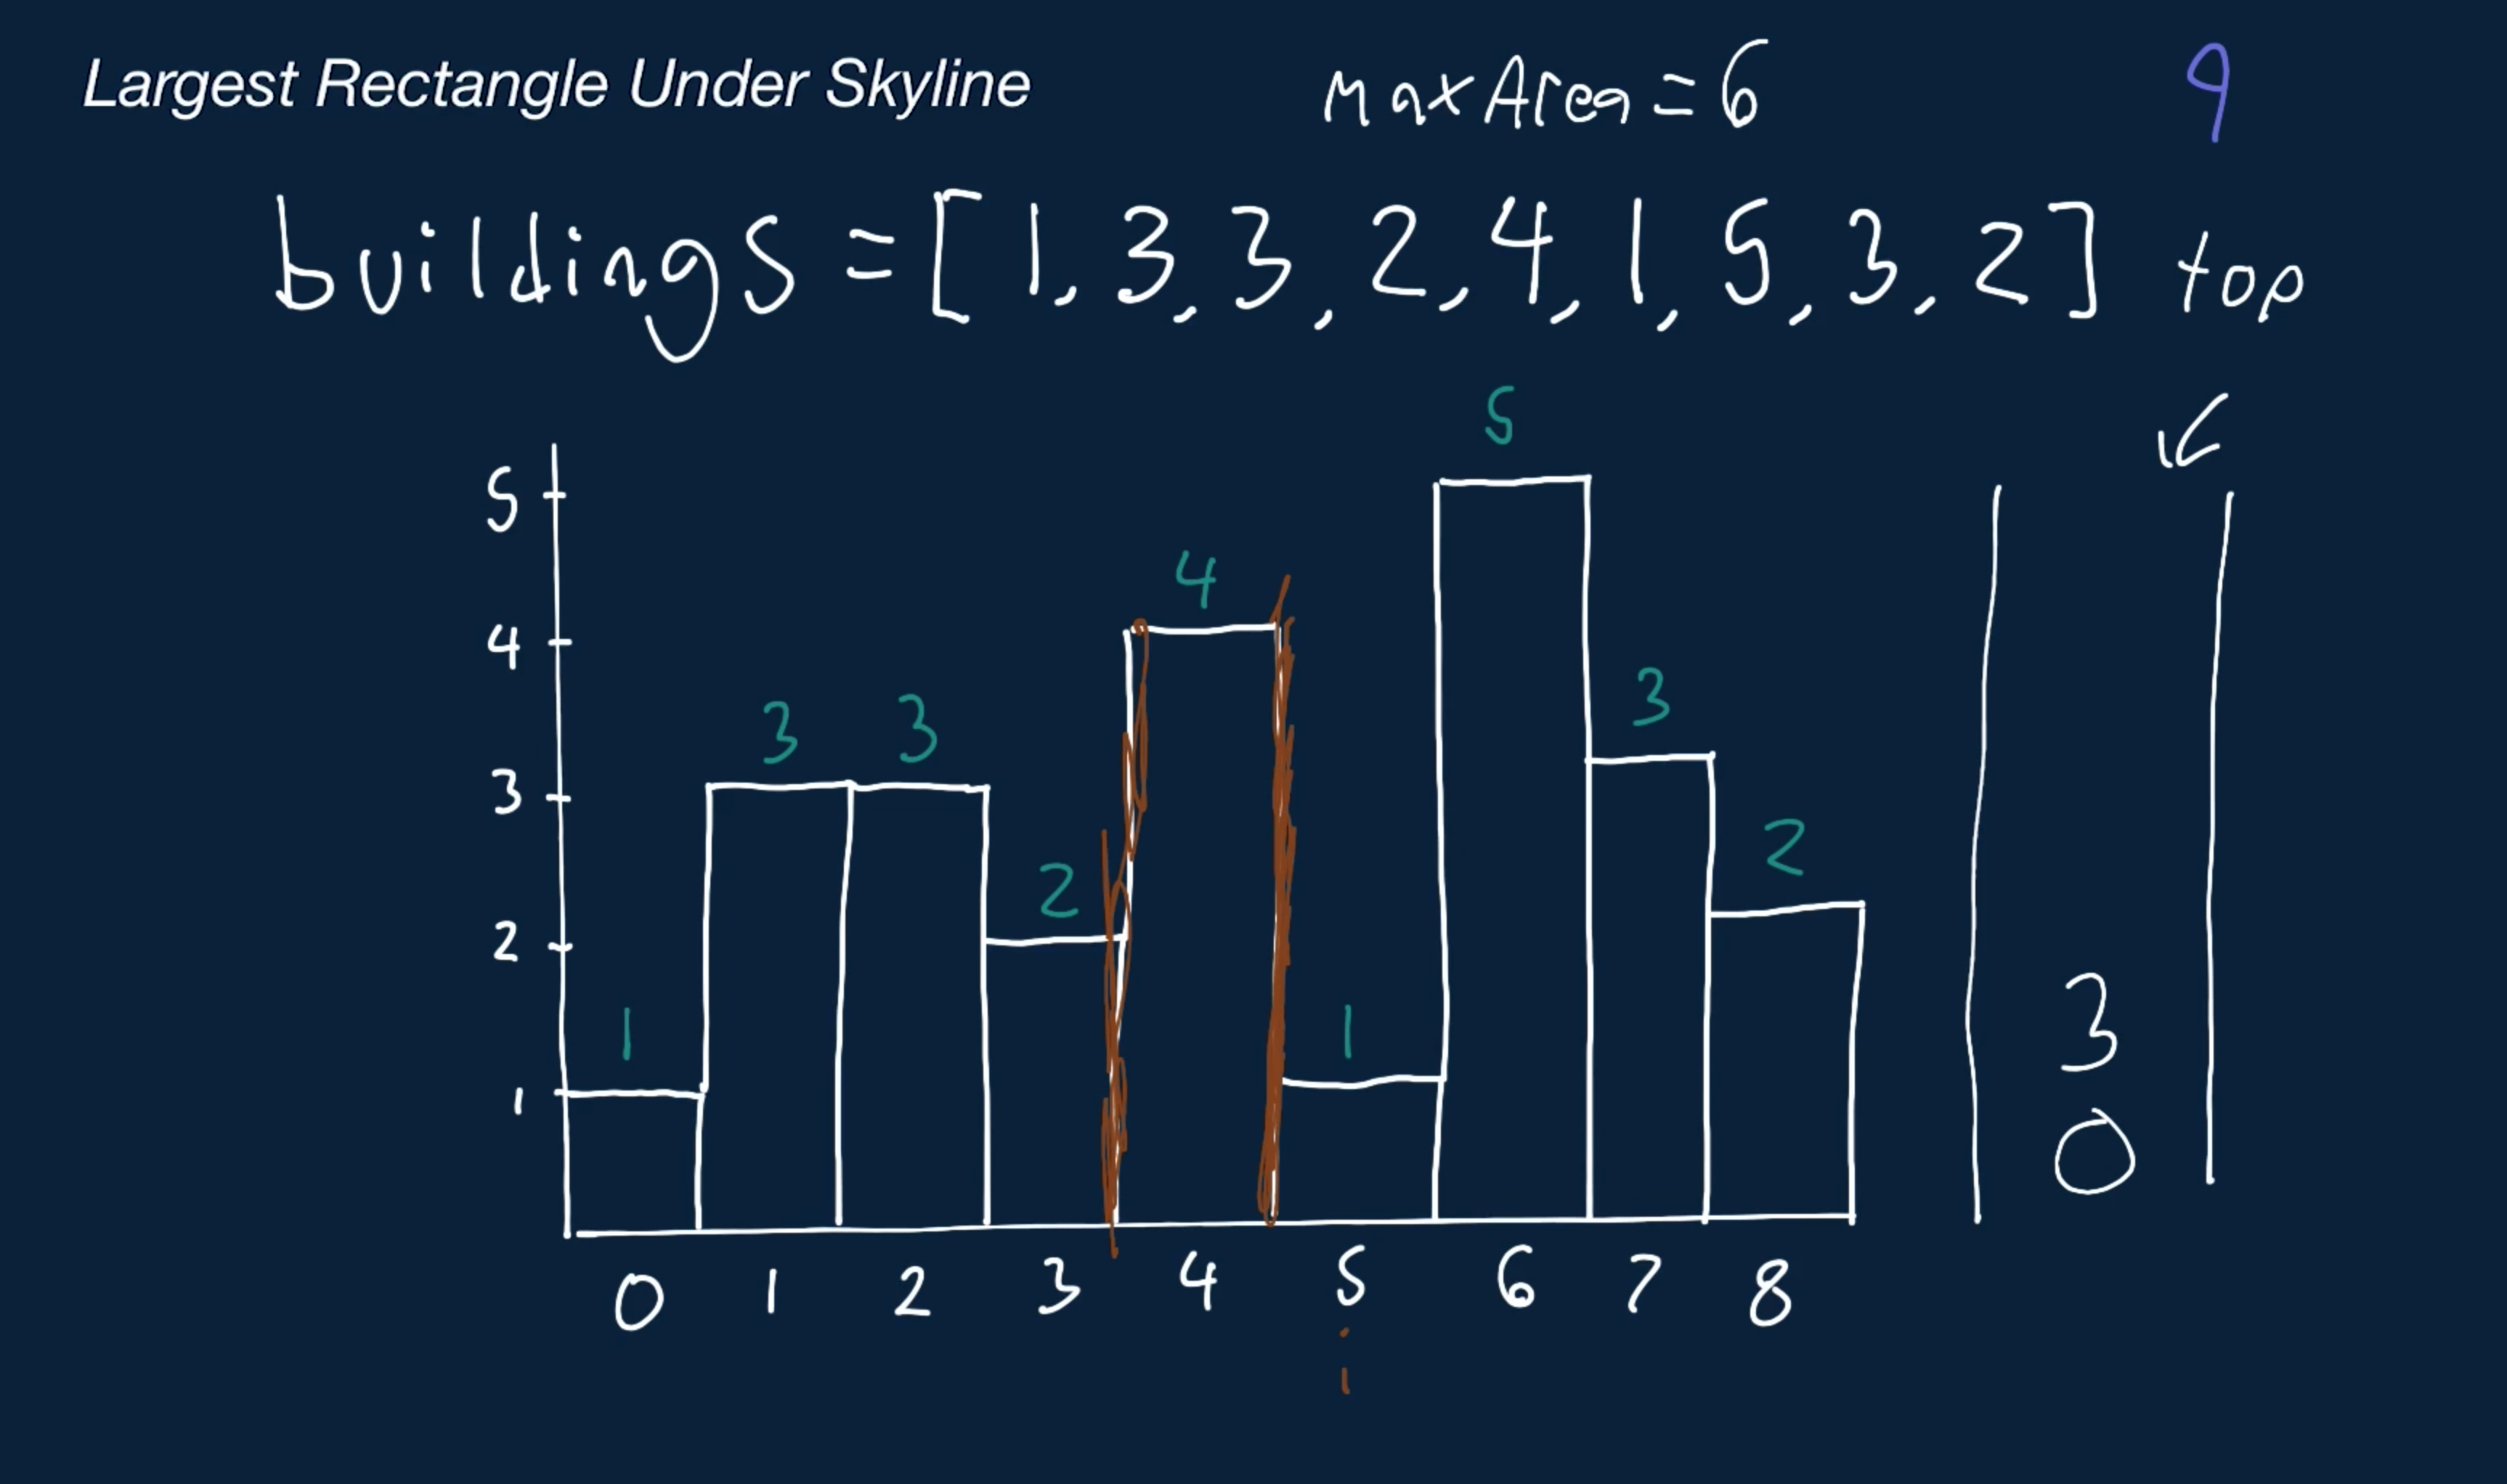 Largest Rectangle Under Skyline
MaxArea=6
9
buildings = [1, 3, 3, 2, 4, 1, 5, 3, 2] top
5
5
4
4
3
3 3
3
2
2
2
1
1
1
3
0
0 1 2 3 4 5 6 7 8
i